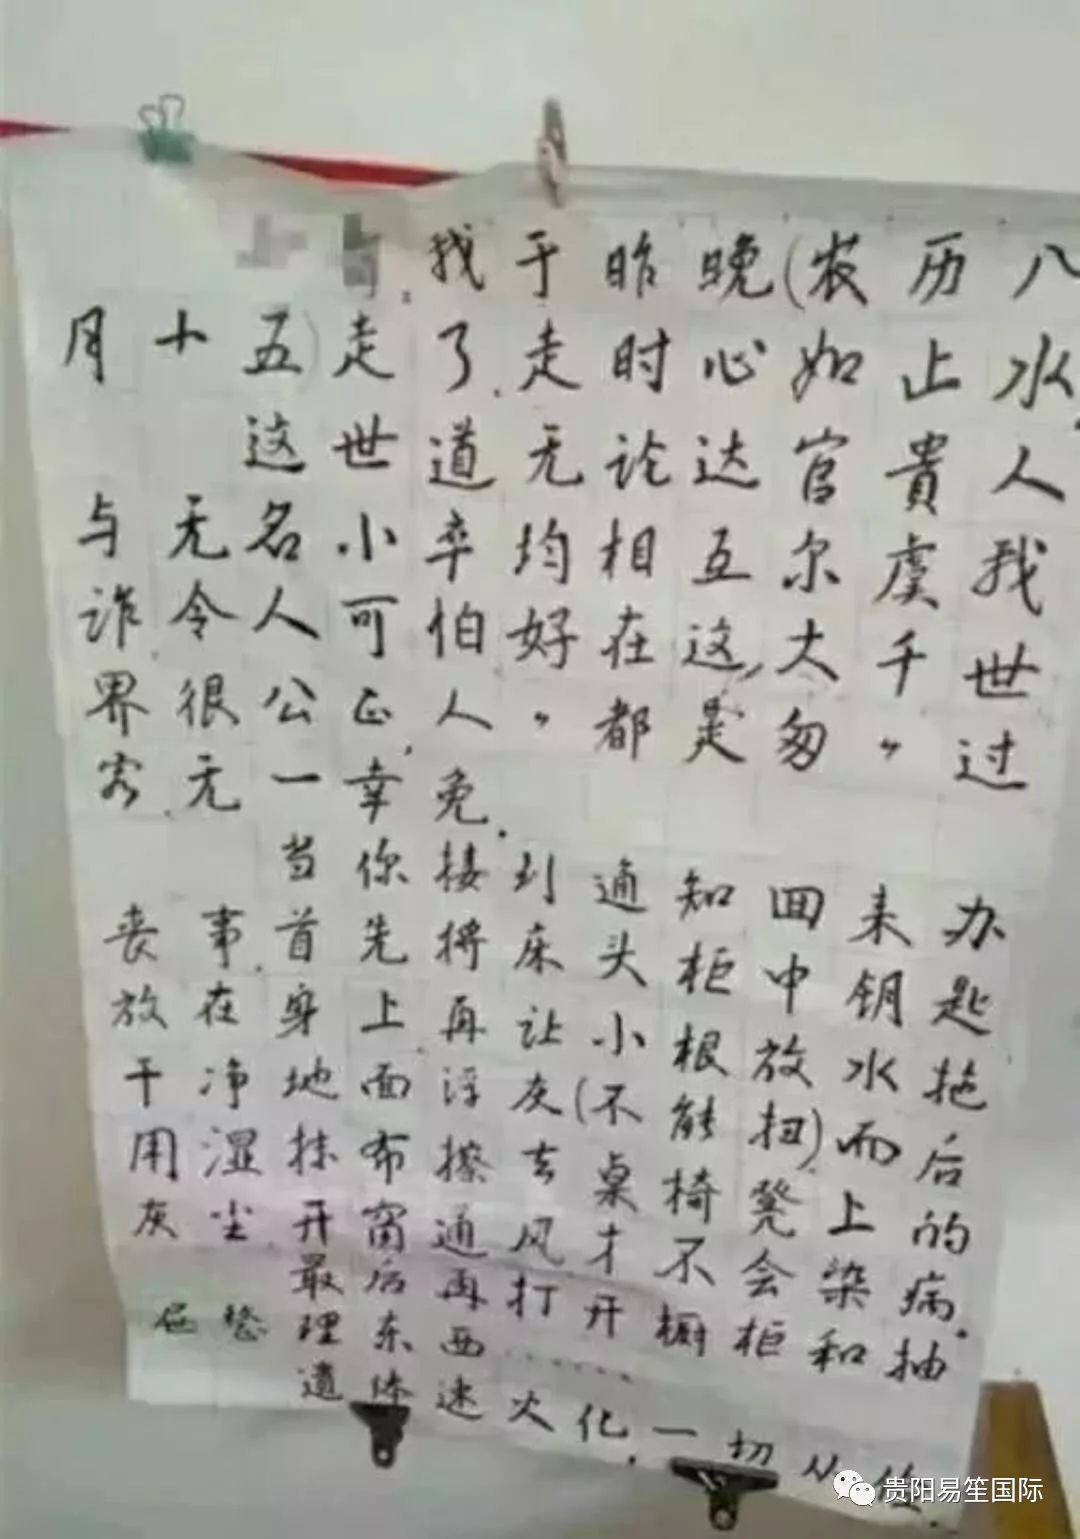 我于昨晚(农历八
月十五)走了.走时心如止水.
这世道无论达官貴人
与无名小卒均相互尔虞我
诈.令人可怕好在这,大千世
界很公正,人〃都是匆〃过
客.无一幸免.
当你接到通知回来办
丧事.首先将床头柜中钥匙
放在身上.再让小根放水拖
干净地面浮灰(不能扭)而后
用湿抹布擦去桌椅凳上的
灰尘.开窗通风才不会染病.
最后再打开橱柜和抽
屉整理东西......
遗体速火化.一切从
贵阳易笙国际